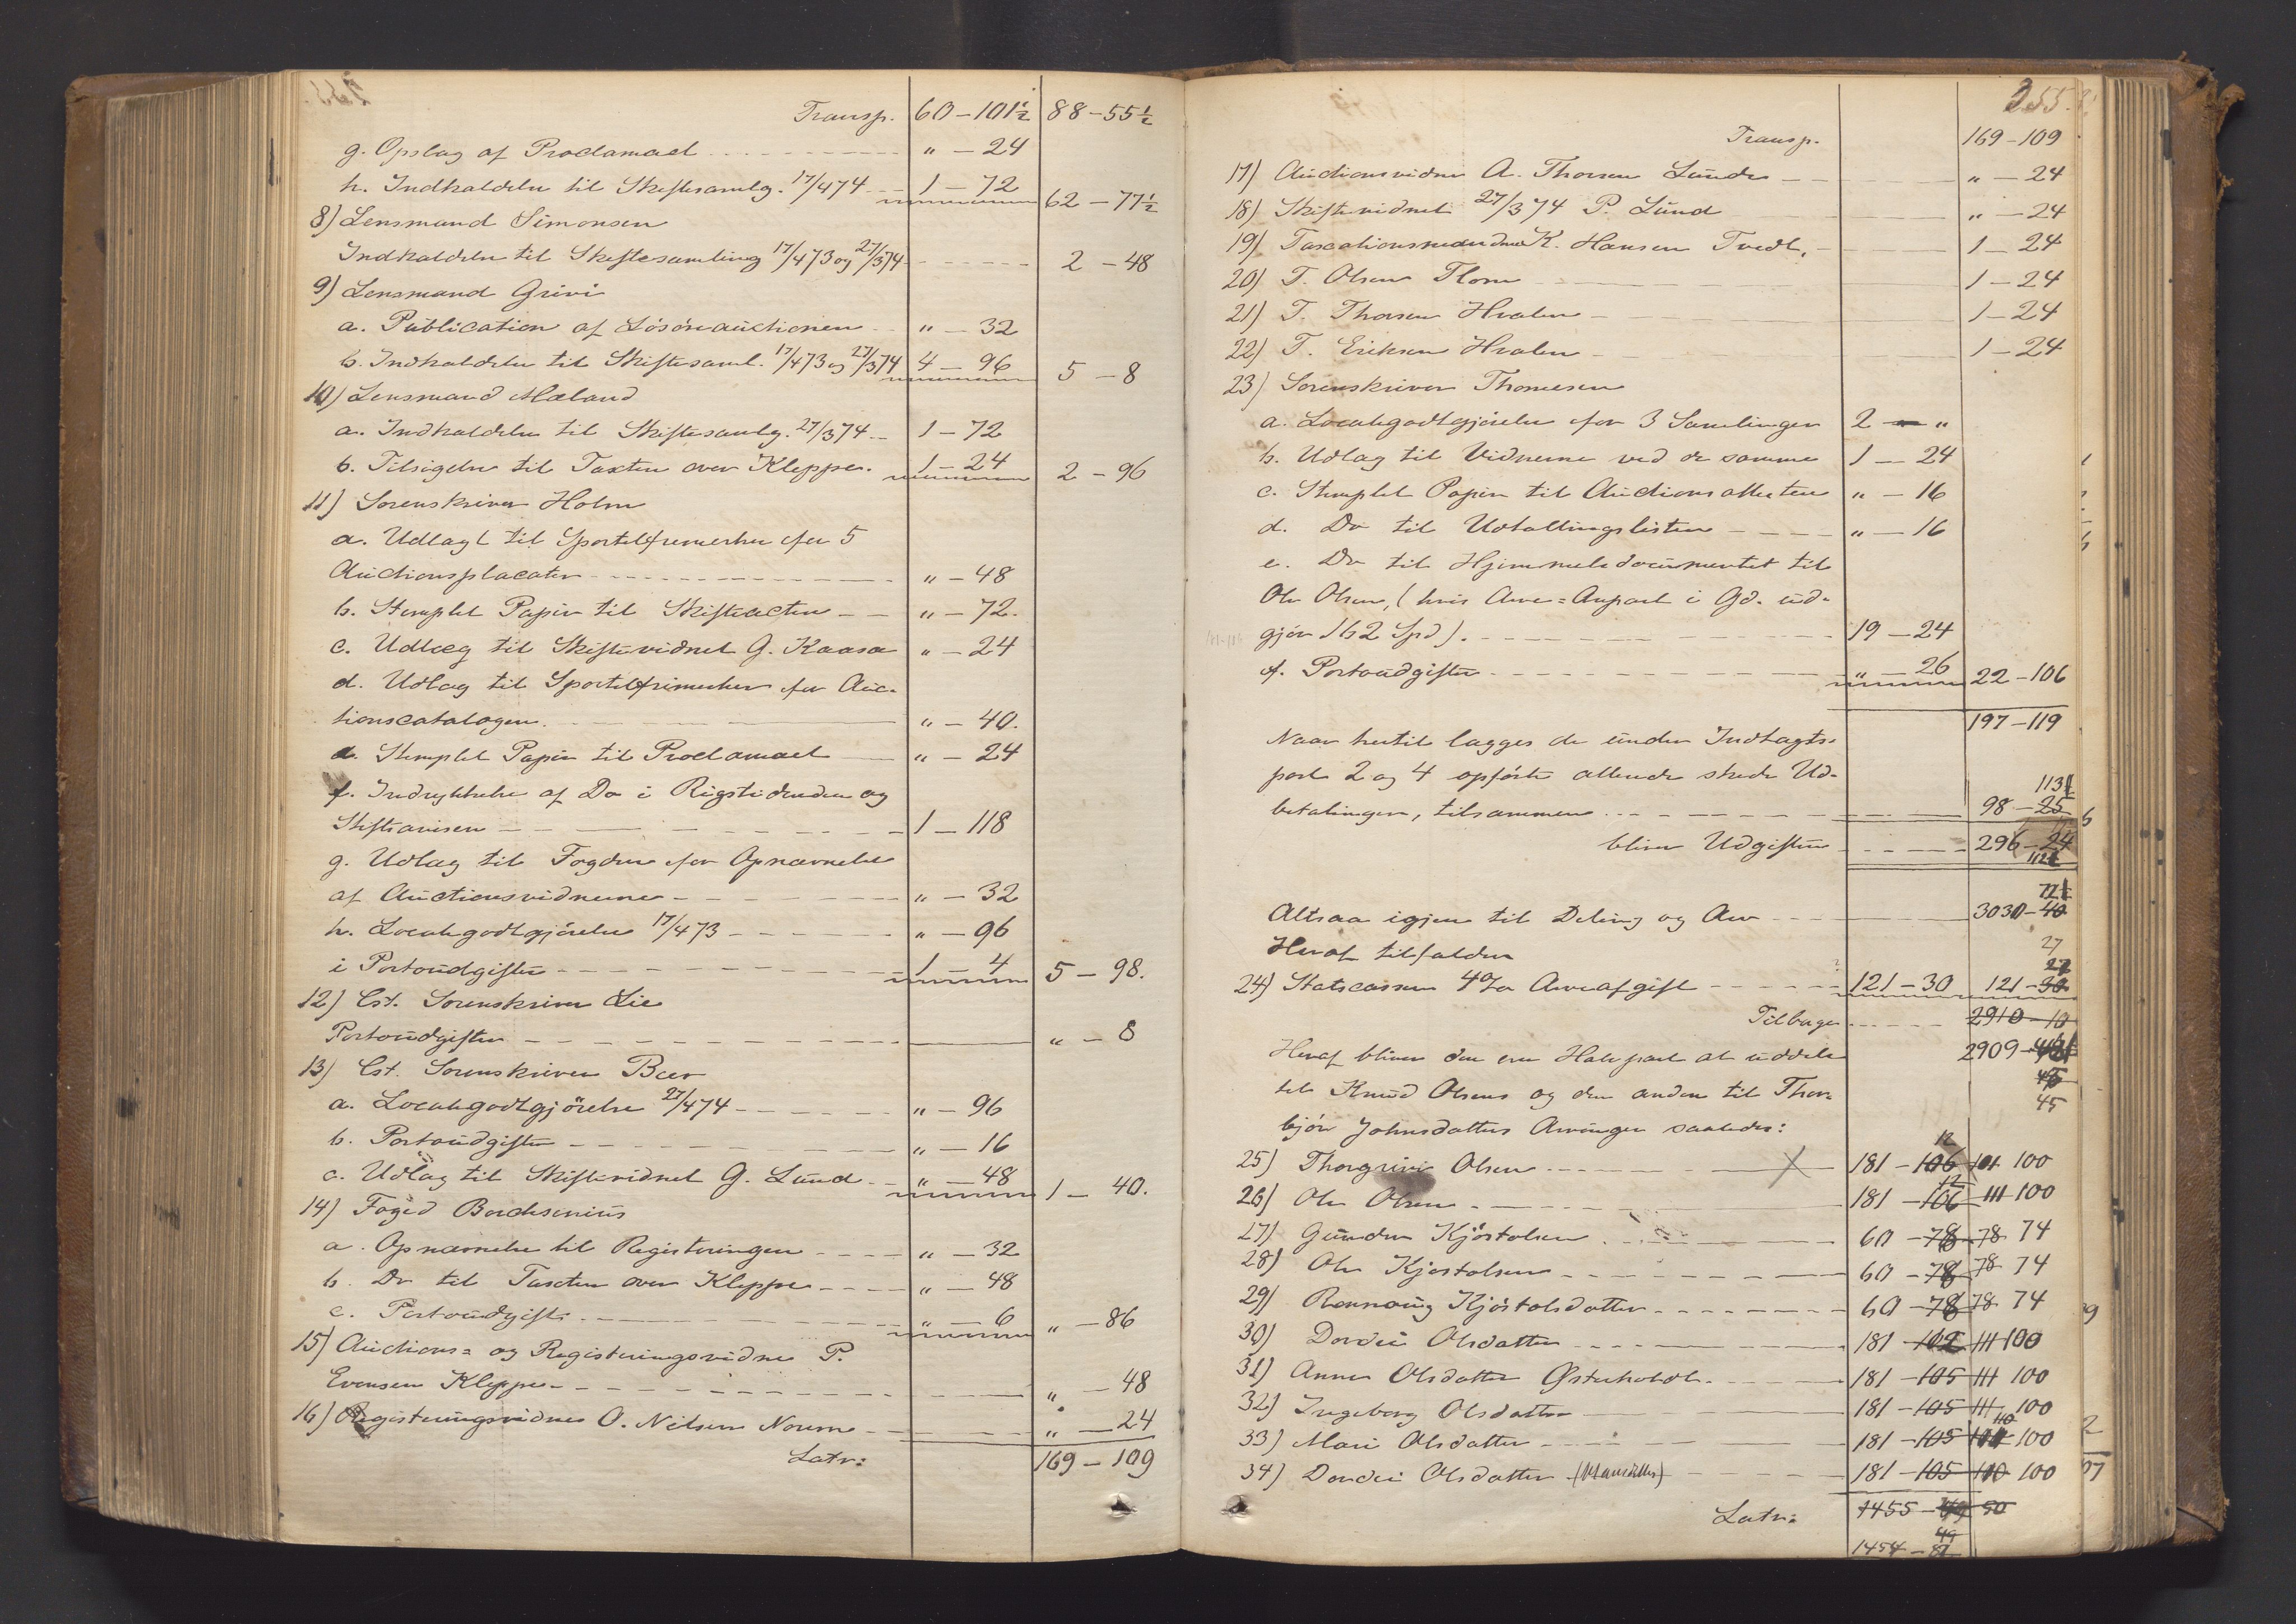 Transp. 60 – 101½ 88 – 55½
g. Opslag af Proclamaet " – 24
h. Indkaldelse til Skiftesamlg. 17/4 74 1 – 72 62 – 77½
8) Lensmand Simonsen
Indkaldelse til Skiftesamling 17/4 73 og 27/3 74 2 – 48
9) Lensmand Grivi
a. Publication af Løsøreauctionen " – 32
b. Indkaldelse til Skiftesaml. 17/4 73 og 27/3 74 4 – 96 5 – 8
10) Lensmand Mæland
a. Indkaldelse til Skiftesamlg. 27/3 74 1 – 72
b. Tilsigelse til Taxten over Kleppe. 1 – 24 2 – 96
11) Sorenskriver Holm
a. Udlagt til Sportelfrimerker for 5
Auctionsplacater " – 48
b. Stemplet Papir til Skifteacten " – 72.
c. Udlæg til Skiftevidnet G. Kaasa " – 24
d. Udlag til Sportelfrimerker for Auc-
tionscatalogen " – 40.
e. Stemplet Papir til Proclamaet " – 24
f. Indrykkelse af Do i Rigstidenden og
Stiftsavisen 1 – 118
g. Udlag til Fogden for Opnævnelse
af Auctionsvidnerne " – 32
h. Localegodtgjørelse 17/4 73 " – 96
i Portoudgifter 1 – 4 5 – 98.
12) Cst. Sorenskriver Lie
Portoudgifter " – 8
13) Cst. Sorenskriver Beer
a. Localegodtgjørelse 27/4 74 " – 96
b. Portoudgifter " – 16
c. Udlag til Skiftevidnet G. Lund " – 48 1 – 40.
14) Foged Borchsenius
a. Opnævnelse til Registeringen " – 32
b. Do til Taxten over Kleppe " – 48
c. Portoudgift " – 6 " – 86
15) Auctions= og Registeringsvidne P.
Evensen Kleppe " – 48
16) Registeringsvidne O. Nilsen Norme " – 24
Latr: 169 – 109
355.
Transp. 169 – 109
17) Auctionsvidne A. Thorsen Lunde " – 24
18) Skiftevidnet 27/3 74 P. Lund " – 24
19) Taxationsmændene K. Hansen Tvedt, 1 – 24
20) T. Olsen Flom 1 – 24
21) T. Thorsen Hvalen 1 – 24
22) T. Eriksen Hvalen 1 – 24
23) Sorenskriver Thomesen
a. Localegodtgjørelse for 3 Samlinger 2 – "
b. Udlag til Vidnerne ved de samme 1 – 24
c. Stemplet Papir til Auctionsattesten " – 16
d. Do til Udtallingslisten " – 16
e. Do til Hjemmelsdocumentet til
Ole Olsen, (hvis Arve=Anpart i Gd. ud-
gjør 162 Spd). 19 – 24
f. Portoudgifter " – 26 22 – 106
197 – 119
Naar hertil lægges de under Indtægts-
post 2 og 4 opførte allerede skede Ud-
113½
betalinger, tilsammen 98 – 25
bliver Udgiften 296 – 24
112½
72½
Altsaa igjen til Deling og Arv 3030 – 40
Heraf tilfalder 27
27
24) Statscassen 4% Arveafgift 121 – 30 121 – 30
Tilbage 2910 – 10
Heraf bliver den ene Halvpart at uddele 2909
til Knud Olsens og den anden til Thor- 45
bjør Johnsdatters Arvinger saaledes: 45
12
25) Thorgrim Olsen X 181 – 106 101 100
12
26) Ole Olsen 181 – 106 111 100
27) Gunder Kjøstolsen 60 – 78 78 74
28) Ole Kjøstolsen 60 – 78 78 74
29) Rønnaug Kjøstolsdatter 60 – 78 78 74
30) Dordei Olsdatter 181 – 102 111 100
31) Anne Olsdatter Østerholdt 181 – 105 111 100
32) Ingeborg Olsdatter 181 – 105 111 100
110
33) Mari Olsdatter 181 – 105 111 100
34) Dordei Olsdatter 181 – 105 110 100
Latr: 1455 – 49 50
49
1454 – 81